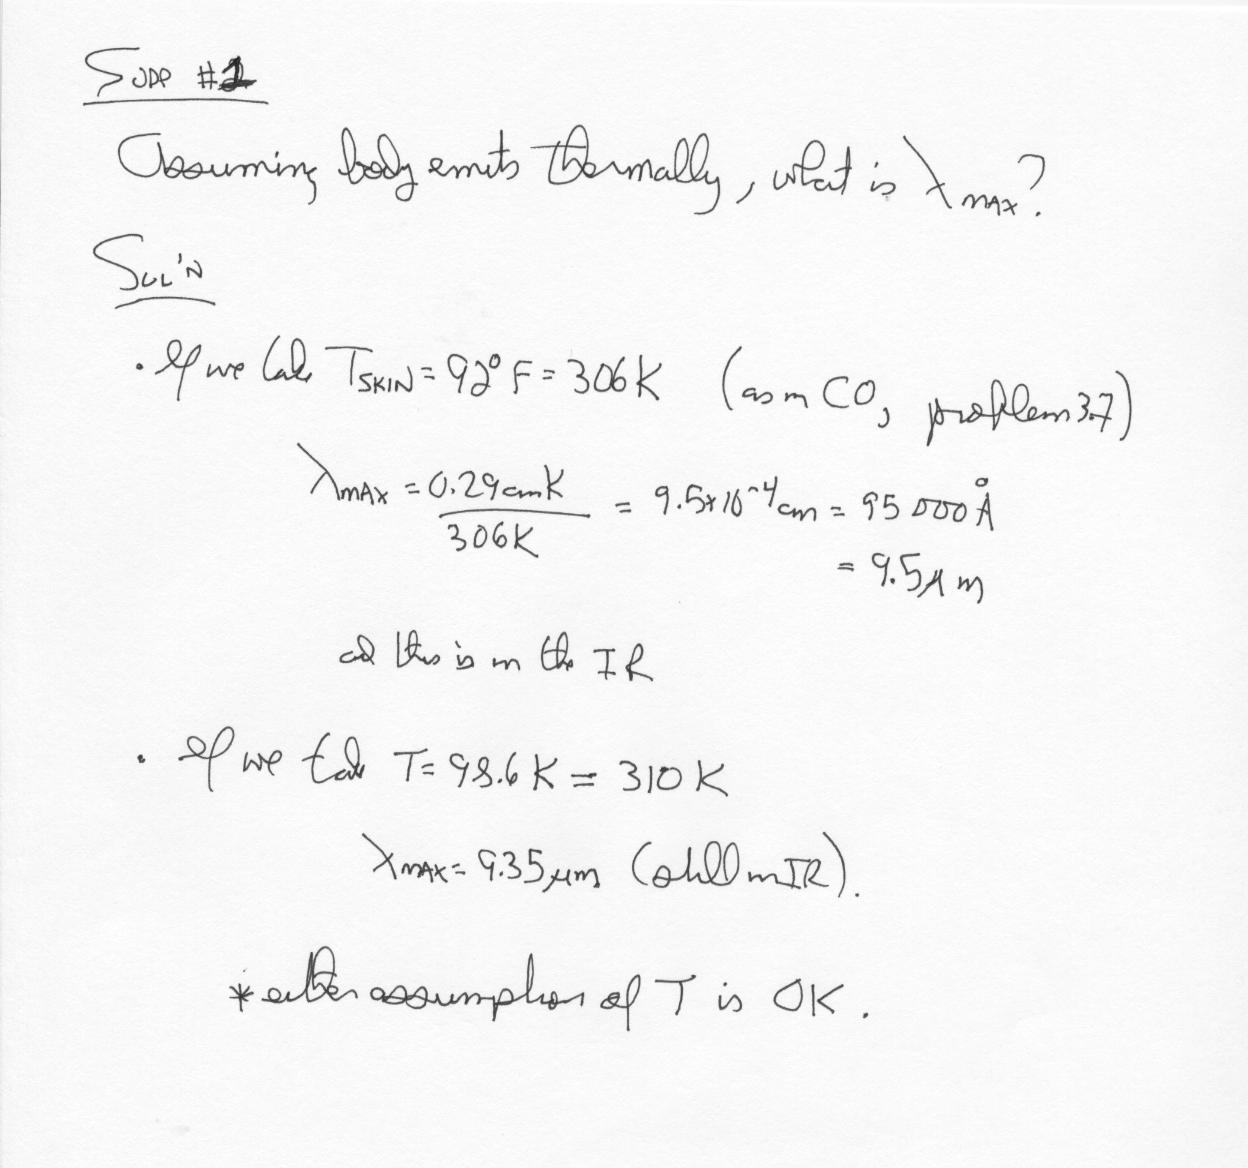 SUPP #1
Assuming body emits thermally, what is λMAX?
SOL'N
• If we take TSKIN = 92° F = 306K (as in CO, problem 3.7)
λMAX = 0.29cmK / 306K = 9.5x10^-4 cm = 95 000 Å
= 9.5μm
and this is in the IR
• If we take T= 98.6 K = 310 K
λMAX = 9.35μm (still in IR).
* either assumption of T is OK.